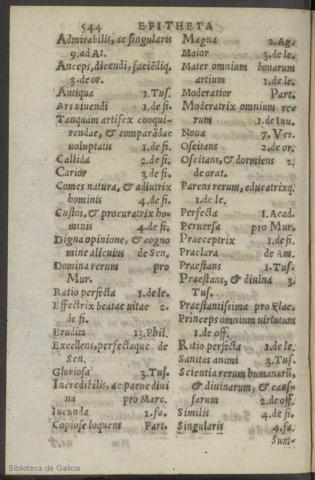 544 EPITHETA
Admirabilis, ac singularis
9. ad At.
Anceps, dicendi, faciẽdiq;
3. de or.
Antiqua 1. Tuſ.
Ars uiuendi 1. de fi.
Tanquam artifex conqui-
rendae, & comparãdae
uoluptatis 1. de fi.
Callida 2. de fi.
Carior 3. de fi.
Comes natura, & adiutrix
hominis 4. de fi.
Cuſtos, & procuratrix ho-
minis 4. de fi.
Digna opinione, & cogno
mine alicuius de Sen.
Domina rerum pro
Mur.
Ratio perfecta 1. de le.
Effectrix beatae uitae 2.
de fi.
Erudita 13. Phil.
Excellens, perfectaque de
Sen.
Glorioſa 3. Tuſ.
Incredibilis, ac paene diui
na pro Marc.
Iucunda 1. fa.
Copioſe loquens Part.
Magna 2. Ag.
Maior 3. de le.
Mater omnium bonarum
artium 1. de le.
Moderatior Part.
Moderatrix omnium re-
rum 1. de Inu.
Noua 7. Ver.
Oſcitans 2. de or.
Oſcitans, & dormiens 2.
de orat.
Parens rerum, educatrixq;
1. de le.
Perfecta 1. Acad.
Peruerſa pro Mur.
Praeceptrix 1. de fi.
Praeclara de Am.
Praeſtans 1. Tuſ.
Praeſtans, & diuina 3.
Tuſ.
Praeſtantiſsima pro Flac.
Princeps omnium uirtutum
1. de off.
Ratio perfecta 1. de le.
Sanitas animi 3. Tuſ.
Scientia rerum humanarũ,
& diuinarum, & cauſ-
ſarum 2. de off.
Similis 4. de fi.
Singularis 4. fa.
Sum-
Biblioteca de Galicia